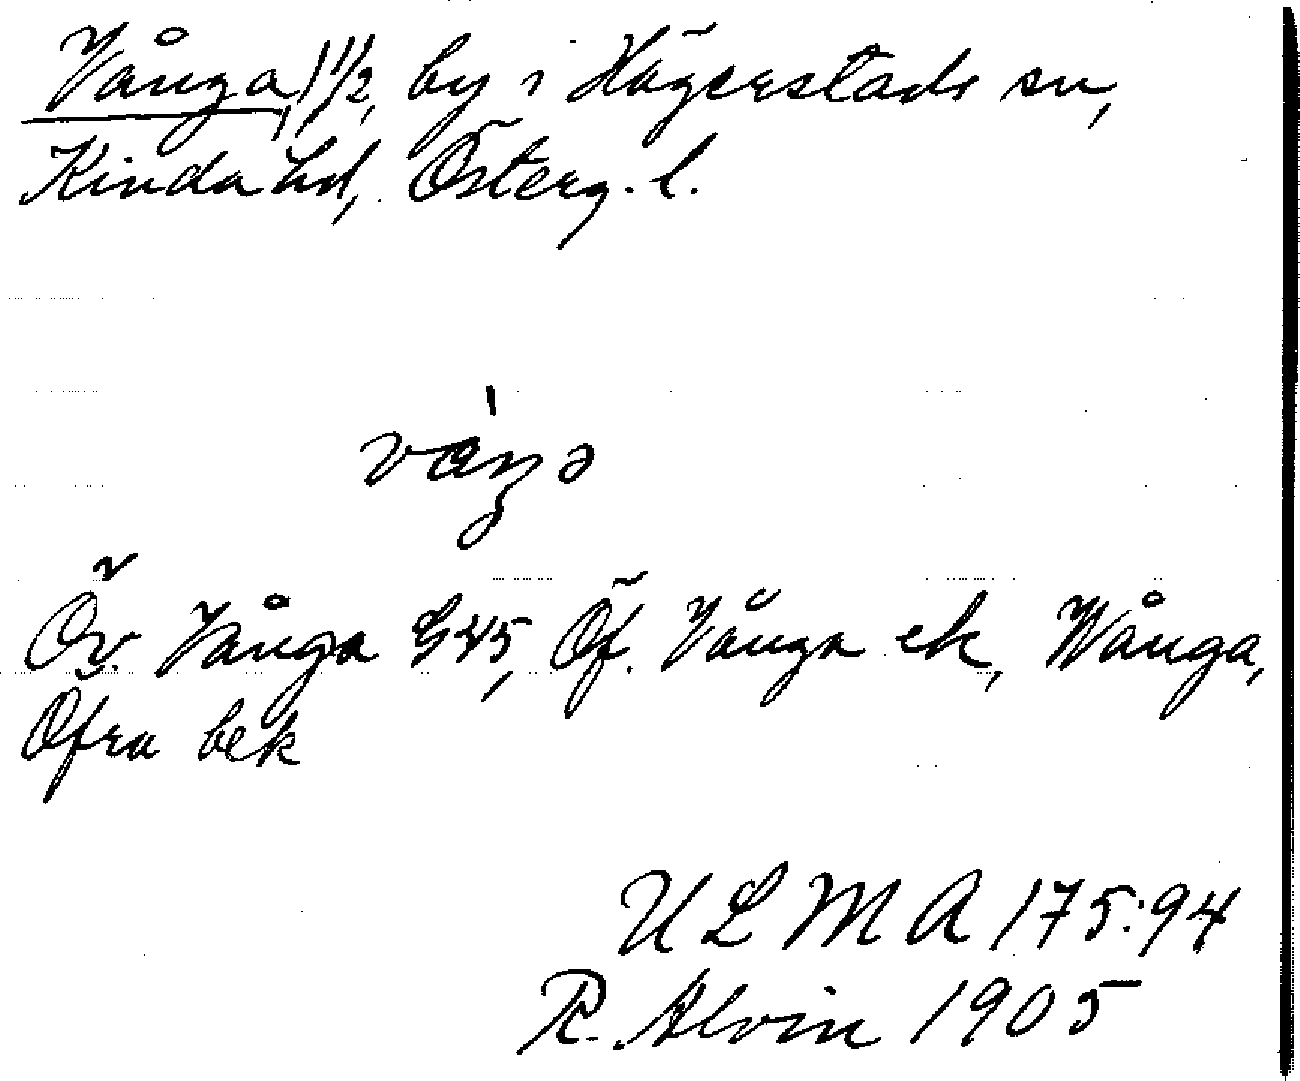 Vånga, 1 1/2, by i Hägerstads sn,
Kinda hd, Österg. l.
Öv. Vånga G45, Öf. Vånga ek, Wånga,
Öfra bek
ULMA 175:94
R. Alvin 1905